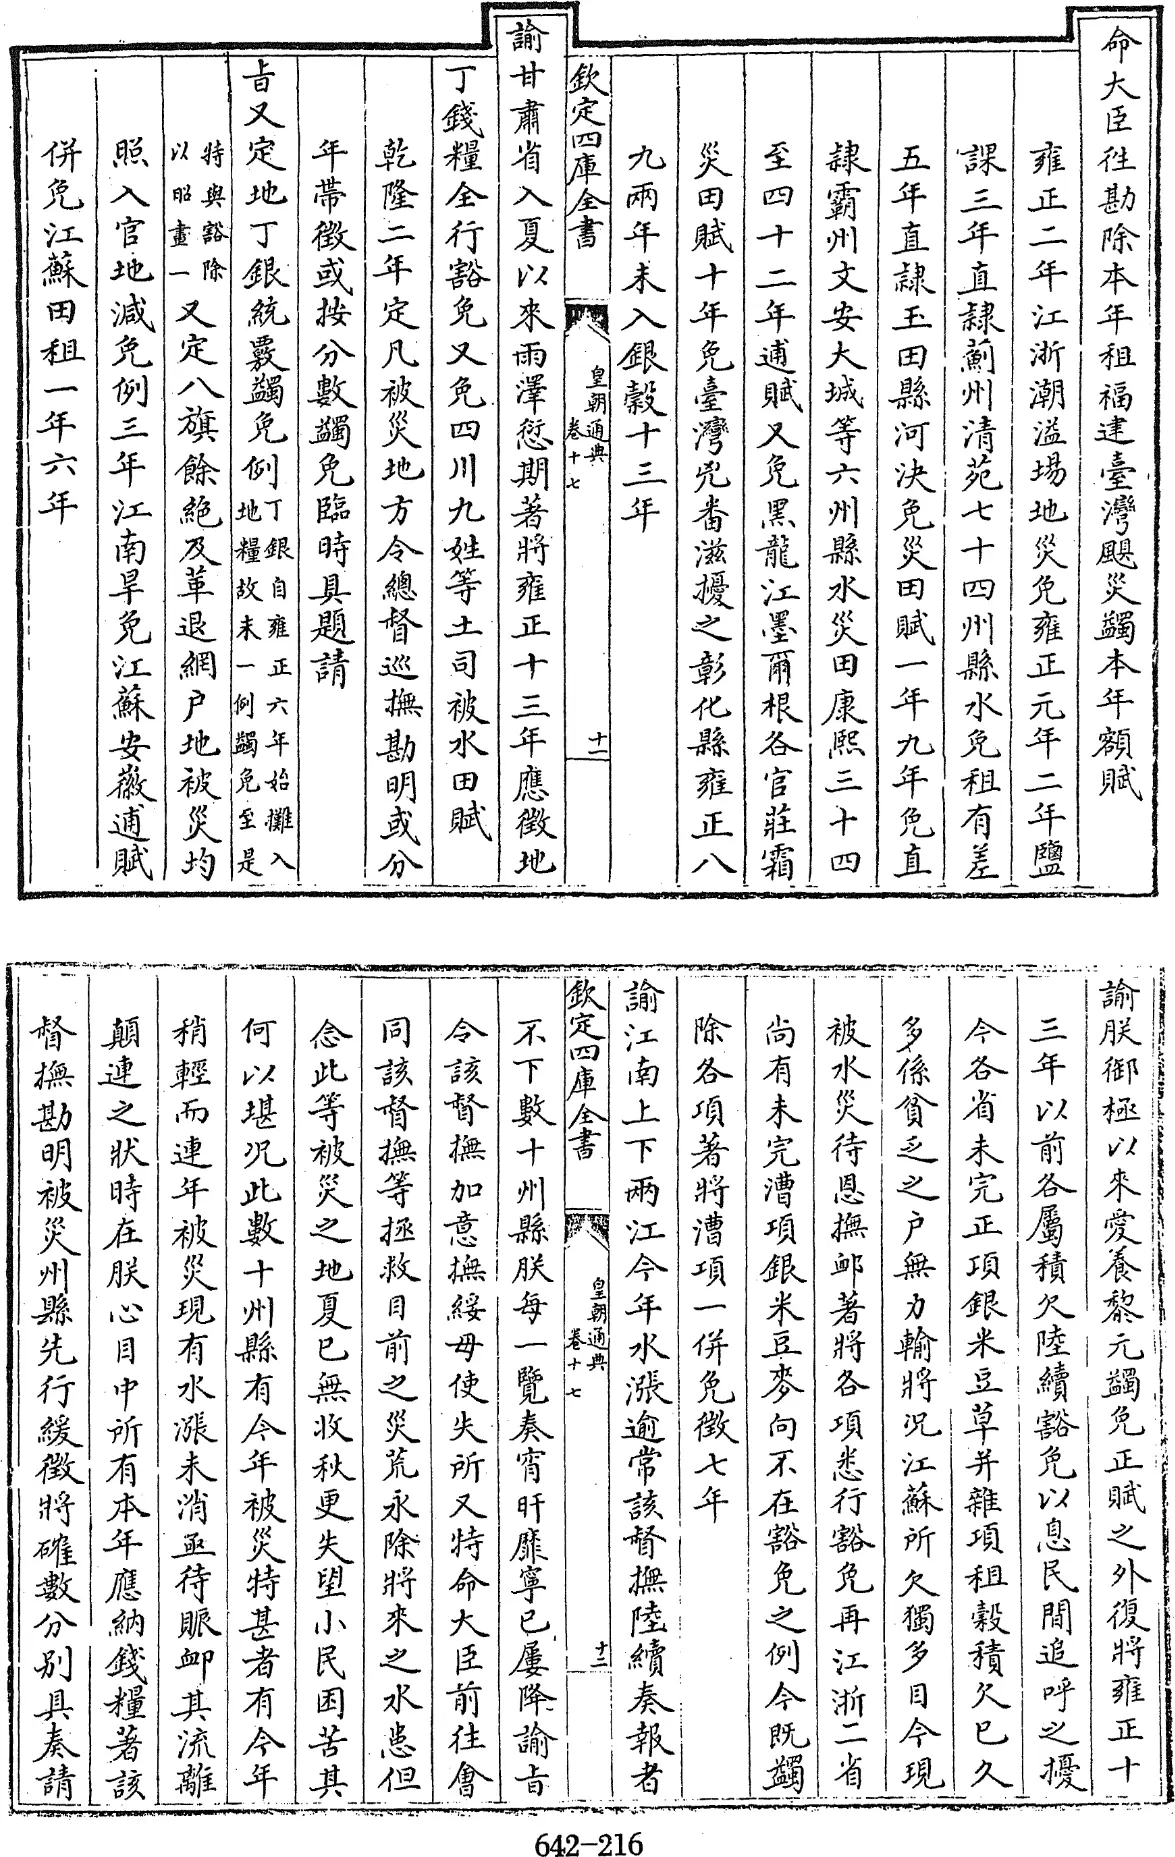 命大臣徃勘除本年租福建臺灣颶災蠲本年額賦
雍正二年江浙潮溢場地災免雍正元年二年鹽
課三年直隸薊州清苑七十四州縣水免租有差
五年直隸玉田縣河决免災田賦一年九年免直
隸霸州文安大城等六州縣水災田康熙三十四
至四十二年逋賦又免黑龍江墨爾根各官莊霜
災田賦十年免臺灣兇番滋擾之彰化縣雍正八
九兩年未入銀穀十三年
欽定四庫全書
皇朝通典
卷十七
十一
諭甘肅省入夏以來雨澤愆期著將雍正十三年應徵地
丁錢糧全行豁免又免四川九姓等土司被水田賦
乾隆二年定凡被災地方令總督巡撫勘明或分
年帶徵或按分數蠲免臨時具題請
㫖又定地丁銀統覈蠲免例丁銀自雍正六年始攤入
地糧故未一例蠲免至是
特與豁除
以昭畫一又定八旗餘絶及革退網户地被災均
照入官地減免例三年江南旱免江蘇安徽逋賦
併免江蘇田租一年六年
諭朕御極以來愛養黎元蠲免正賦之外復將雍正十
三年以前各屬積欠陸續豁免以息民間追呼之擾
今各省未完正項銀米豆草并雜項租穀積欠已久
多係貧乏之户無力輸將况江蘇所欠獨多目今現
被水災待恩撫䘏著將各項悉行豁免再江浙二省
尚有未完漕項銀米豆麥向不在豁免之例今既蠲
除各項著將漕項一併免徵七年
諭江南上下兩江今年水漲逾常該督撫陸續奏報者
欽定四庫全書
皇朝通典
卷十七
十二
不下數十州縣朕每一覽奏宵旰靡寧已屢降諭㫖
令該督撫加意撫綏毋使失所又特命大臣前往會
同該督撫等拯救目前之災荒永除將來之水患但
念此等被災之地夏已無收秋更失望小民困苦其
何以堪况此數十州縣有今年被災特甚者有今年
稍輕而連年被災現有水漲未消亟待賑䘏其流離
顛連之狀時在朕心目中所有本年應納錢糧著該
督撫勘明被災州縣先行緩徵將確數分别具奏請
642-216